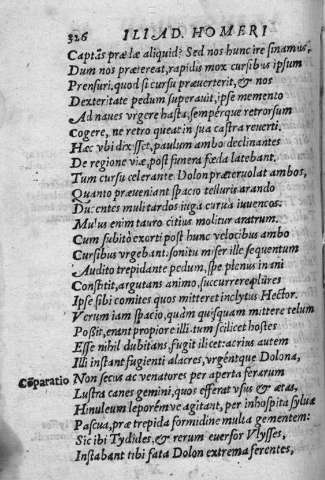 326 ILIAD. HOMERI
Captās præ læ aliquid? Sed nos hunc ire sinamus,
Dum nos prætereat, rapidis mox cursibus ipsum
Prensuri. quod si cursu præuerterit, & nos
Dexteritate pedum superauit, ipse memento
Ad naues vrgere hasta, sempérque retrorsum
Cogere, ne retro queat in sua castra reuerti.
Hæc vbi dixsset, paulum ambo declinantes
De regione viæ, post funera fœda latebant.
Tum cursu celerante Dolon præteruolat ambos,
Quanto præueniant spacio telluris arando
Ducentes muli tardos iuga curua iuuencos:
Mulus enim tauro citius molitur aratrum.
Cum subitò exorti post hunc velocibus ambo
Cursibus vrgebant. sonitu miser ille sequentum
Audito trepidante pedum, spe plenus inani
Constitit, argutans animo, succurrere plures
Ipse sibi comites quos mitteret inclytus Hector.
Verum iam spacio, quàm quisquam mittere telum
Poßit, erant propiore illi. tum scilicet hostes
Esse nihil dubitans, fugit ilicet: acrius autem
Illi instant fugienti alacres, vrgéntque Dolona,
Cōparatio Non secus ac venatores per aperta ferarum
Lustra canes gemini, quos efferat vsus & ætas,
Hinuleum leporémve agitant, per inhospita syluæ
Pascua, præ trepida formidine multa gementem:
Sic ibi Tydides, & rerum euersor Vlysses,
Instabant tibi fata Dolon extrema ferentes,